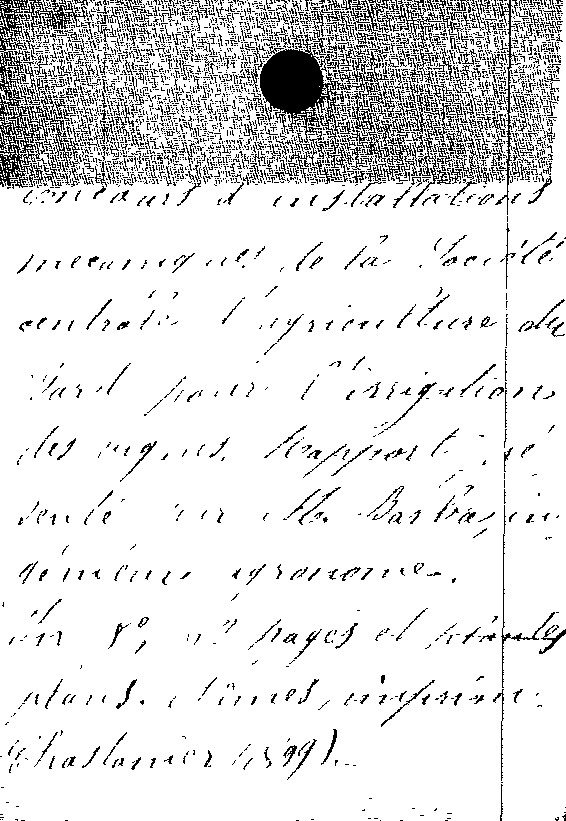 concours d'installations
mecaniques de la Société
centrale d'agriculture du
Gard pour l'irrigation
des vignes. Rapport pré
senté par M. Barbas, in
génieur agronome.
In 8°, pages et
plans. Nimes, imprim.
Chastanier (1899).